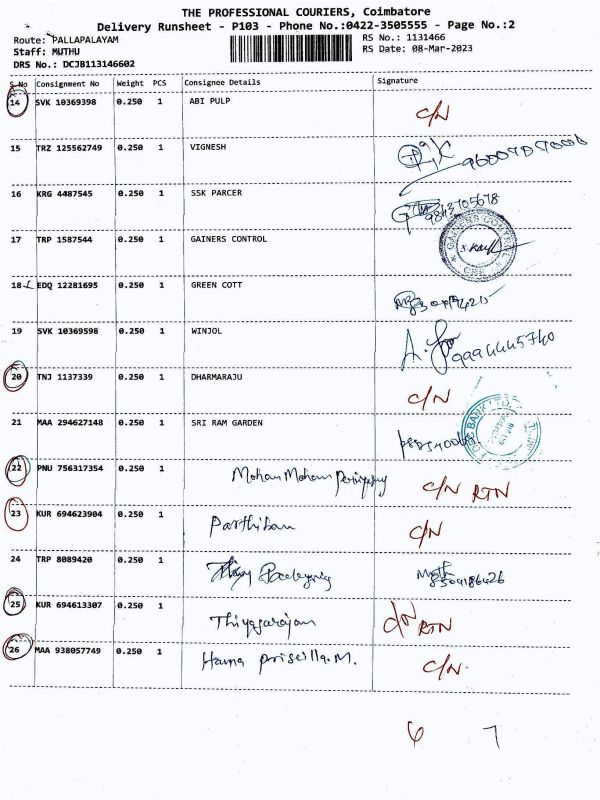 THE PROFESSIONAL COURIERS, Coimbatore
Delivery Runsheet - P103 - Phone No.:0422-3505555 - Page No.:2
Route: PALLAPALAYAM RS No.: 1131466
Staff: MUTHU RS Date: 08-Mar-2023
DRS No.: DCJB113146602
S.No Consignment No Weight PCS Consignee Details Signature
14 SVK 10369398 0.250 1 ABI PULP C/N
15 TRZ 125562749 0.250 1 VIGNESH
16 KRG 4487545 0.250 1 SSK PARCER 9843705678
17 TRP 1587544 0.250 1 GAINERS CONTROL
18 EDQ 12281695 0.250 1 GREEN COTT
19 SVK 10369598 0.250 1 WINJOL 9994445740
20 TNJ 1137339 0.250 1 DHARMARAJU C/N
21 MAA 294627148 0.250 1 SRI RAM GARDEN
22 PNU 756317354 0.250 1 Mohan Mohan C/N RTN
23 KUR 694623904 0.250 1 Parthiban C/N
24 TRP 8089420 0.250 1
25 KUR 694613307 0.250 1 Thiyagarajan C/N RTN
26 MAA 938057749 0.250 1 Hanna Priscilla.M. C/N
6 7